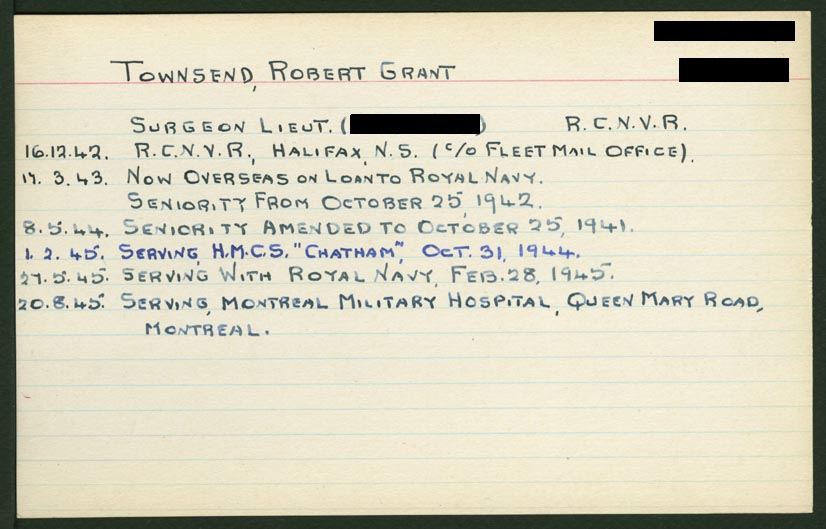 TOWNSEND, ROBERT GRANT
SURGEON LIEUT. ( ) R.C.N.V.R.
16.12.42. R.C.N.V.R., HALIFAX, N.S. (C/O FLEET MAIL OFFICE).
17. 3. 43. NOW OVERSEAS ON LOAN TO ROYAL NAVY.
SENIORITY FROM OCTOBER 25, 1942.
8. 5. 44. SENIORITY AMENDED TO OCTOBER 25, 1941.
1. 2. 45. SERVING, H.M.C.S. "CHATHAM", OCT. 31, 1944.
27. 5. 45. SERVING WITH ROYAL NAVY, FEB. 28, 1945.
20. 8. 45. SERVING, MONTREAL MILITARY HOSPITAL, QUEEN MARY ROAD,
MONTREAL.